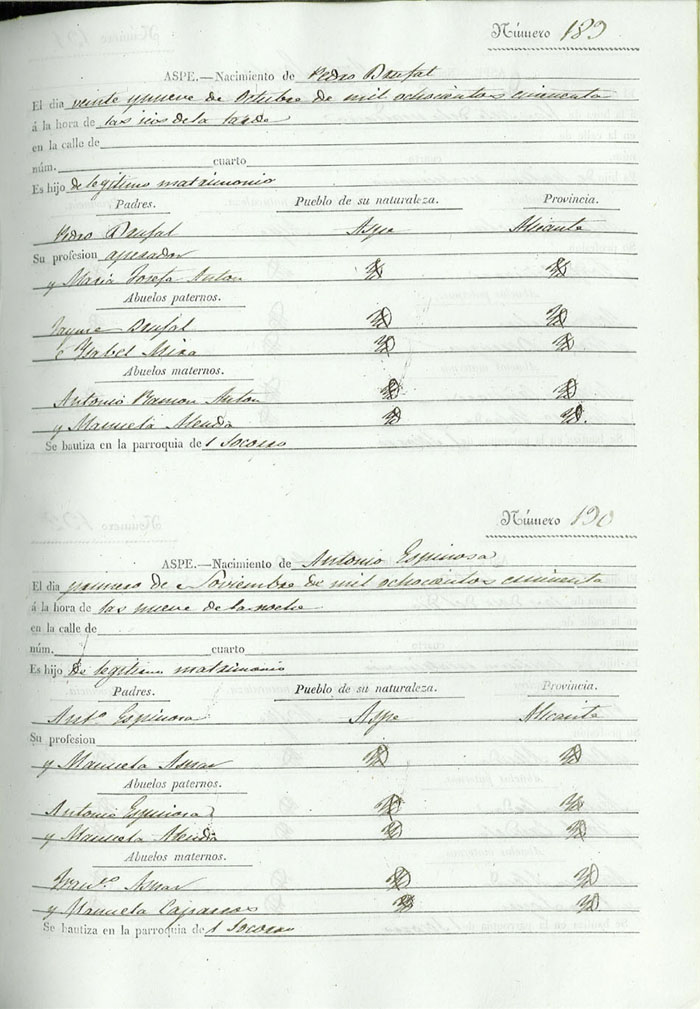 Número 189
ASPE.—Nacimiento de Pedro Brufal
El dia veinte y nueve de Octubre de mil ochocientos cincuenta
á la hora de las seis de la tarde
en la calle de
núm. cuarto
Es hijo de legitimo matrimonio
Padres. Pueblo de su naturaleza. Provincia.
Pedro Brufal Aspe Alicante
Su profesion operador
y Maria Josefa Anton
Abuelos paternos.
Jayme Brufal
é Ysabel Mira
Abuelos maternos.
Antonio Ramon Anton
y Manuela
Se bautiza en la parroquia de l Socorro
Número 190
ASPE.—Nacimiento de Antonio Espinosa
El dia primero de Noviembre de mil ochocientos cincuenta
á la hora de las nueve de la noche
en la calle de
núm. cuarto
Es hijo de legitimo matrimonio
Padres. Pueblo de su naturaleza. Provincia.
Antº Espinosa Aspe Alicante
Su profesion
y Manuela Aznar
Abuelos paternos.
Antonio Espinosa
y Manuela
Abuelos maternos.
Franco. Aznar
y Manuela Caparros
Se bautiza en la parroquia de l Socorro